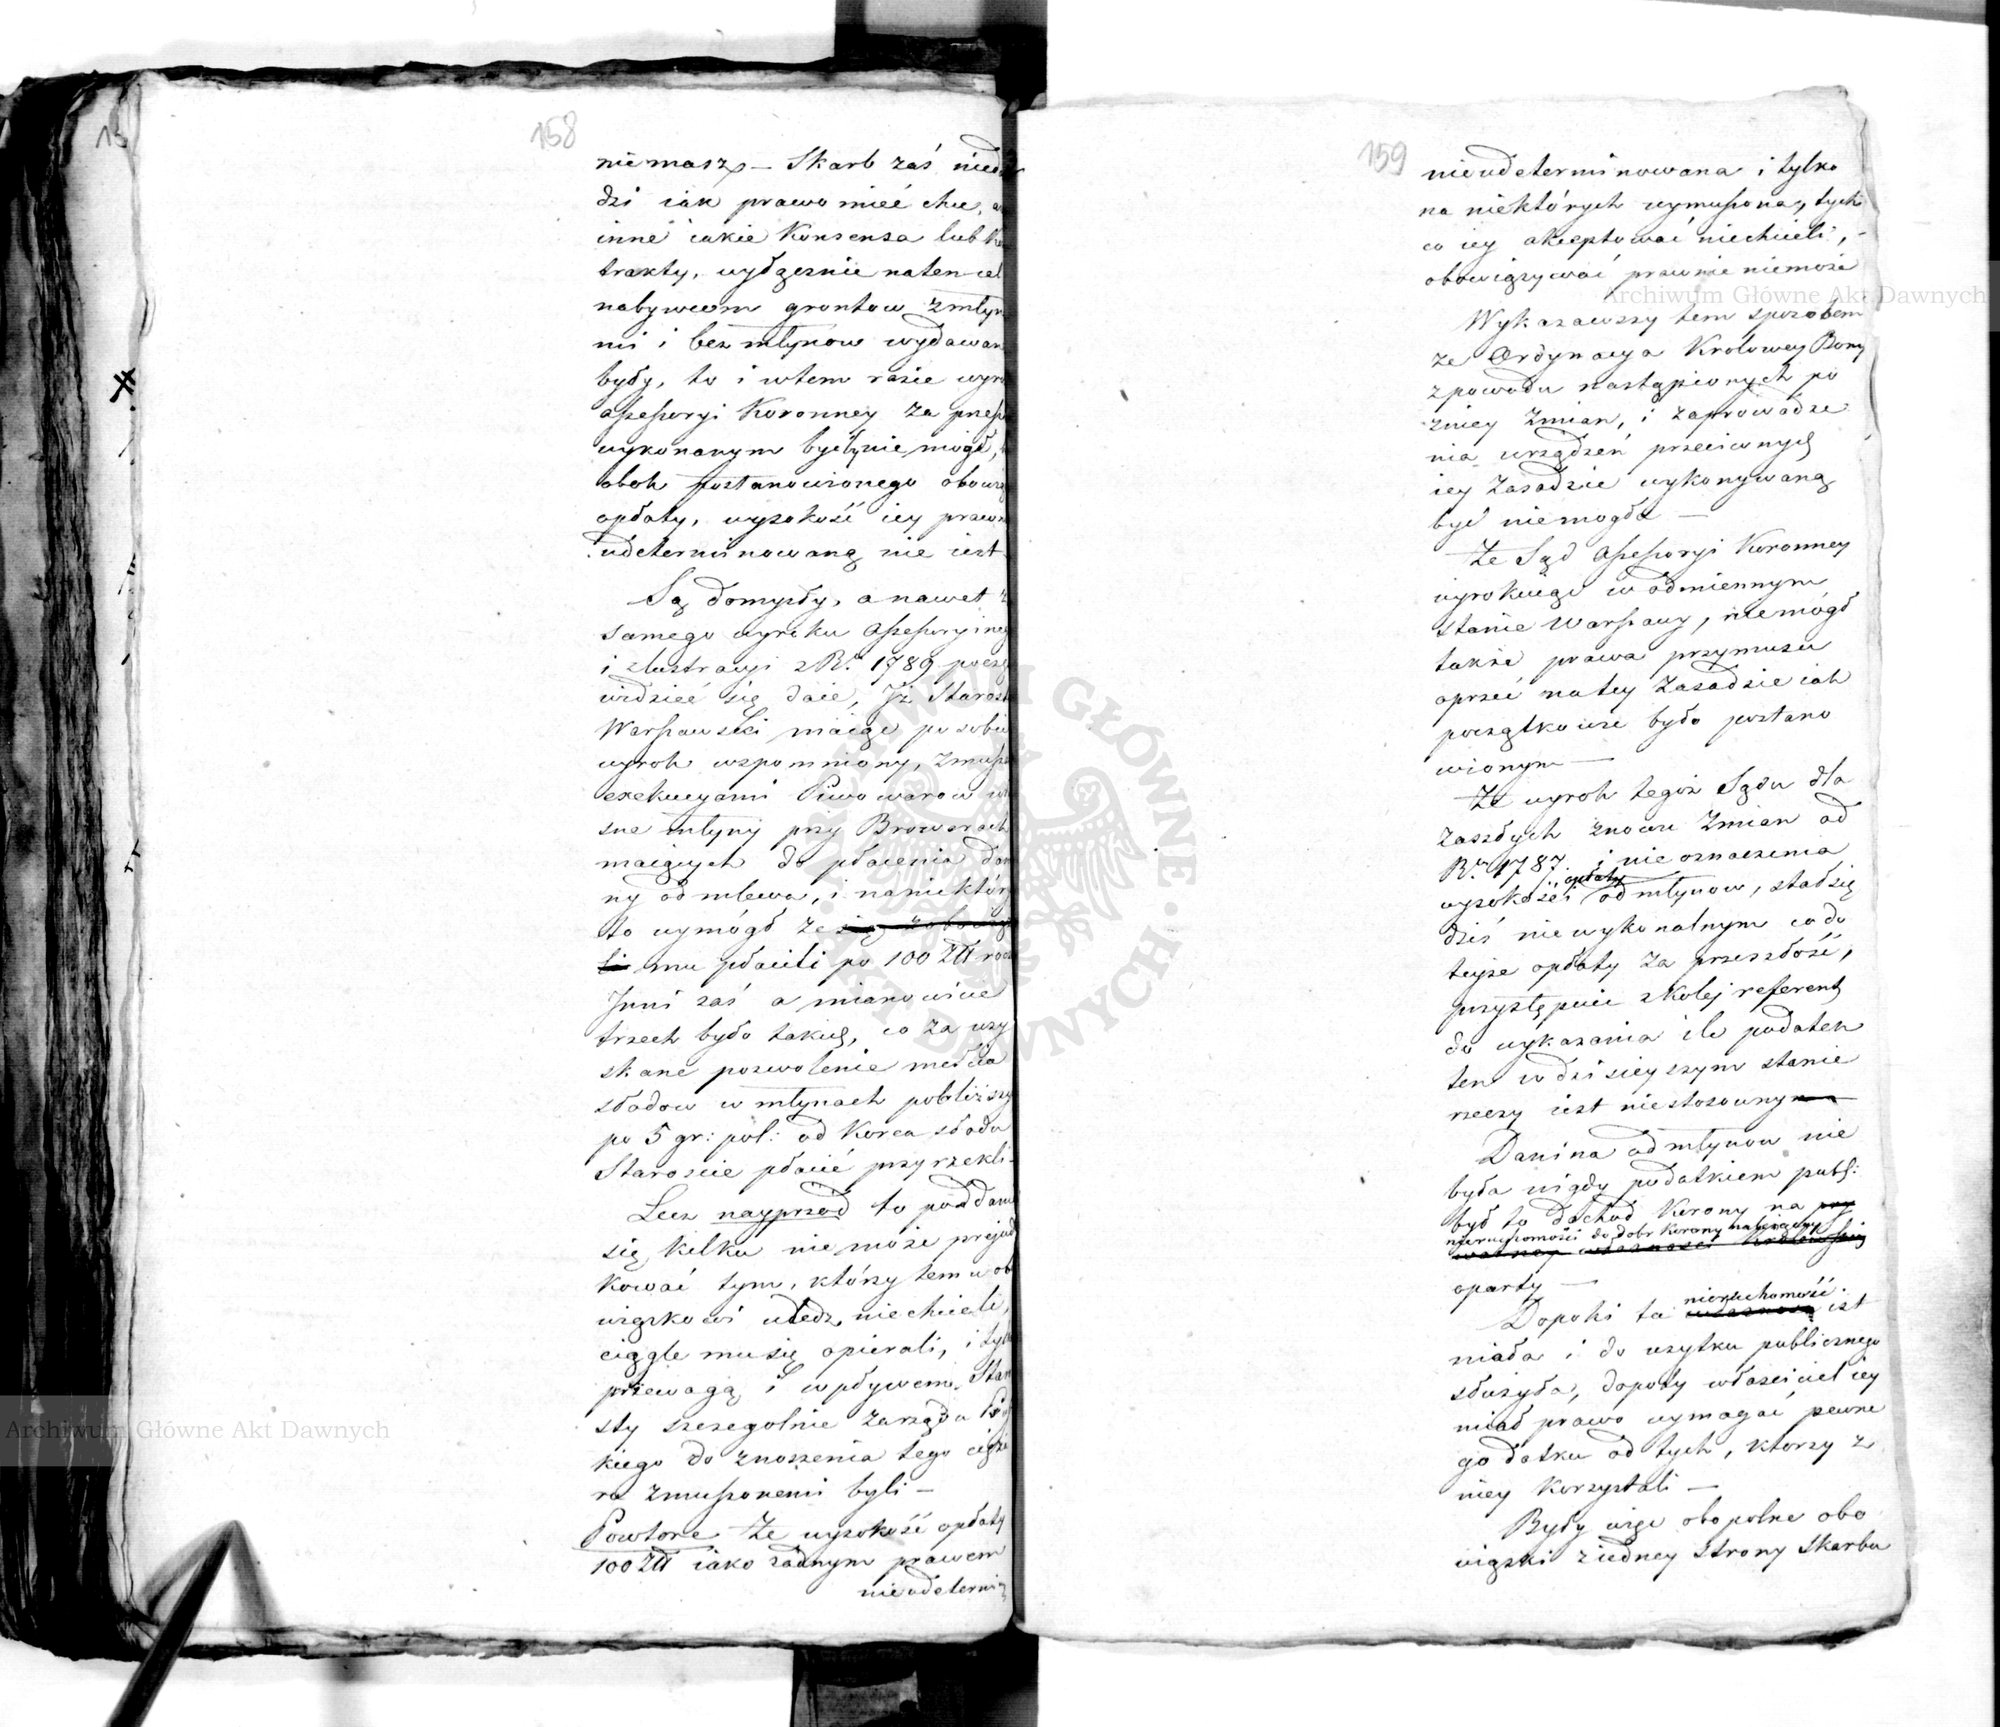 158
niemasz – Skarb zaś nied
dzi iak prawo mieć chce, a
inne iakie Konsensa lub ko
trakty, wyłącznie naten cel
nabywcom grontow z młyn
mi i bez młynow wydawan
były, to i wtem razie wyro
assessoryi Koronney za przesz
wykonanym bydź nie mogł,
obok postanowionego obowią
opłaty, wysokość iey prawn
udeterminowaną nie iest
Są domysły, a nawet z
samego wyroku assessoryineg
i lustracyi z R. 1789 począ
widzieć się daie, Iż Starost
Warszawski maiąc po sobie
wyrok wspomniony, zmusz
exekucyami Piwowarow wł
sne młyny przy Browarach
maiących do płacenia dan
ny od mlewa, i na niektóry
to wymógł że się zobowiąz
li mu płacili po 100 Złł rocz
Inni zaś a mianowicie
trzech było takich, co za uzy
skane pozwolenie mełcia
słodow w młynach pobliższy
po 5 gr: pol: od Korca słodu
Staroscie płacić przyrzekli –
Lecz nayprzod to poddani
się kilku nie może prejud
kować tym, którzy temu ob
wiązkowi uledz niechcieli,
ciągle mu się opierali, i tyl
przewagą i wpływem Star
sty szczegolnie zarządu
kiego do znoszenia tego cięża
ru zmuszonemi byli –
Powtore Że wysokość opłaty
100 Złł iako żadnym prawem
nieudetermi
159
nieudeterminowana i tylko
na niektórych wymuszona, tych
co iey akceptować niechcieli, –
obowiązywać prawnie niemoże
Wykazawszy tem sposobem
ze Ordynacya Krolowey Bony
z powodu nastąpionych po
zniey zmian, i zaprowadze
nia urządzeń przeciwnych
iey zasadzie wykonywaną
być niemogła –
Że Sąd assessoryi Koronney
wyrokuiąc w odmiennym
stanie Warszawy, niemógł
także prawa przymusu
oprzeć na tey zasadzie iak
początkowie było postano
wionym –
Że wyrok tegoż Sądu dla
zaszłych znowu zmian od
R. 1787. i nie oznaczenia
wysokości opłaty od młynow, stał się
dziś niewykonalnym co do
teyże opłaty za przeszłość,
przystępuie z kolej referent
do wykazania ile podatek
ten w dzisieyszym stanie
rzeczy iest niestosownym –
Danina od młynow nie
była nigdy podatkiem publ:
był to dochod Korony na pry
nieruchomości do dobr Korony należącey
watney własności Krolewskiey
oparty –
Dopoki ta nieruchomość własność ist
niała i do uzytku publicznego
służyła, dopoty właściciel iey
miał prawo wymagać pewne
go datku od tych, ktorzy z
niey korzystali –
Były więc obopolne obo
wiązki z iedney strony Skarbu
Archiwum Główne Akt Dawnych
Archiwum Główne Akt Dawnych
ARCHIWUM GŁÓWNE AKT DAWNYCH